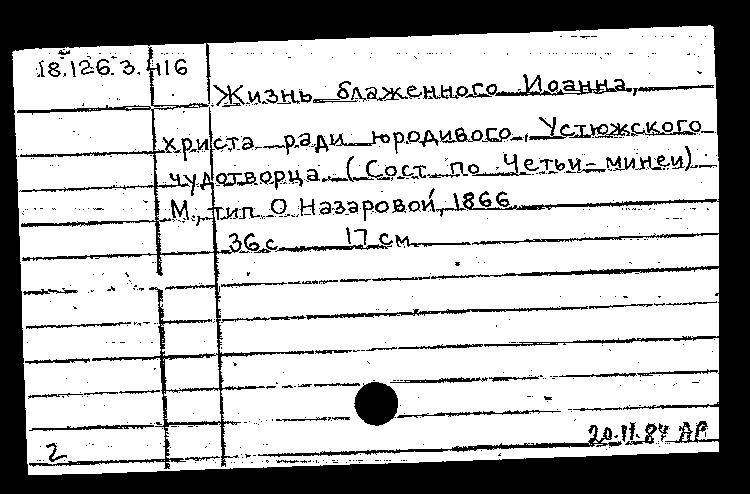 18.126.3.416
Жизнь блаженного Иоанна,
христа ради юродивого, Устюжского
чудотворца (Сост по Четьи-минеи)
М., тип О Назаровой, 1866
36 с 17 см
2 20.11.84 АР